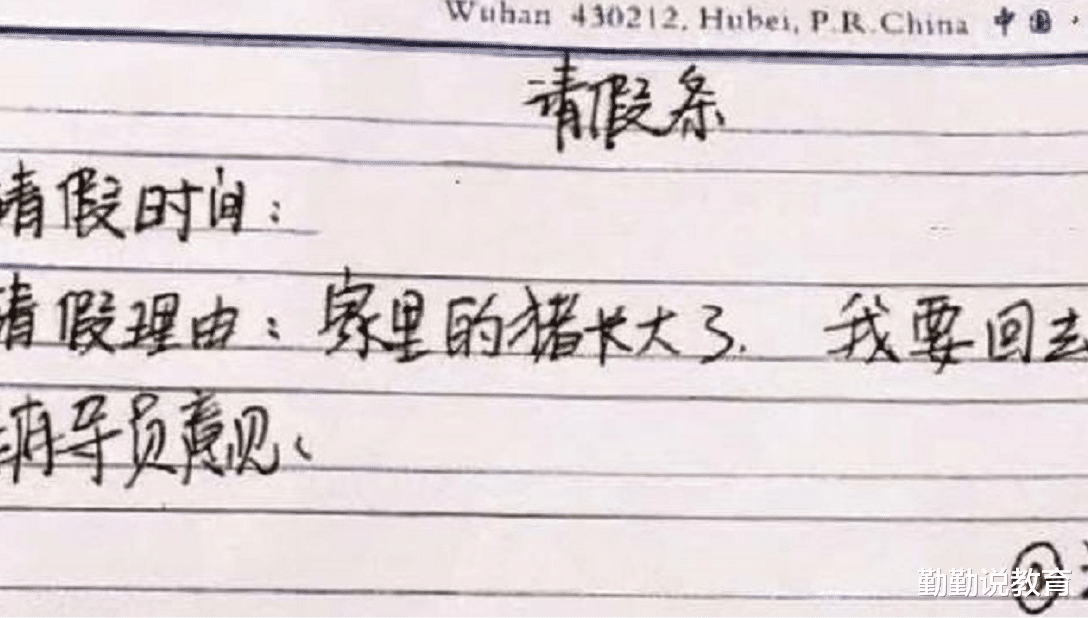 Wuhan 430212, Hubei, P.R.China 中国·
请假条
请假时间:
请假理由:家里的猪长大了. 我要回去
辅导员意见:
勤勤说教育